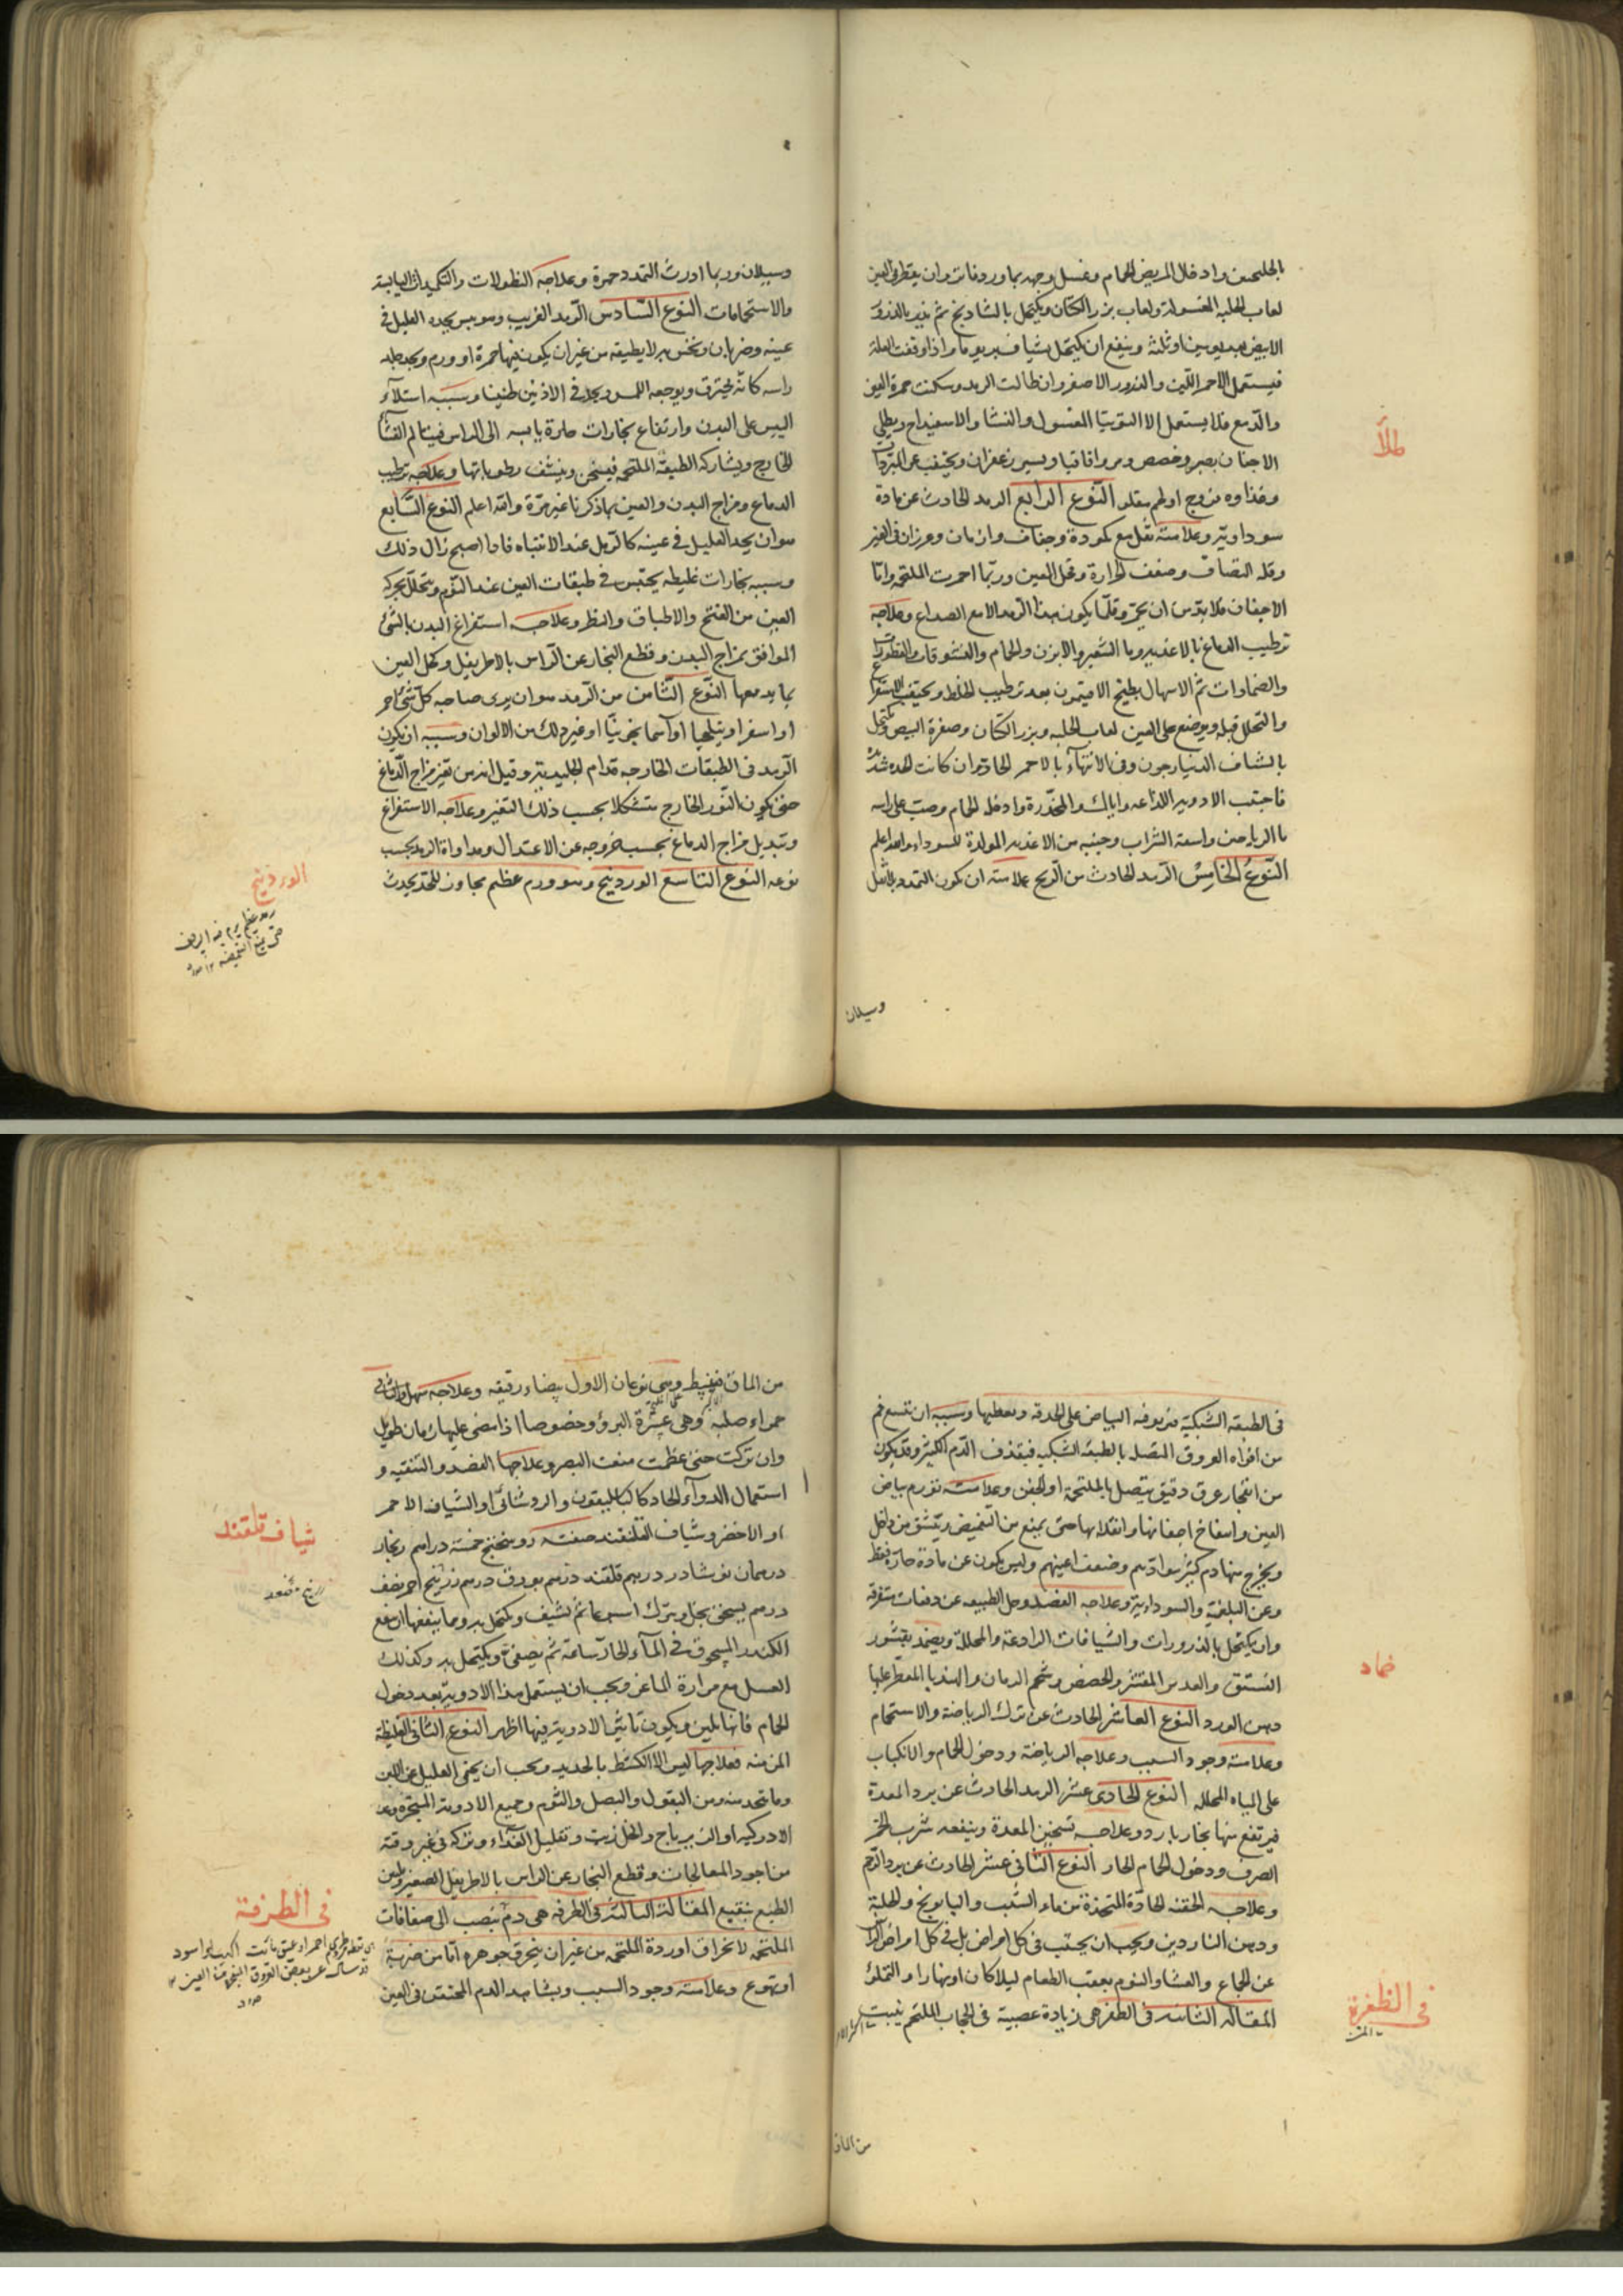 بالجلنجبين وادخال المريض الحمام وغسل وجهه بماء ورد فاتر وان يقطر في العين
لعاب الحلبه المغسولة ولعاب بزر الكتان ويكتحل بالشادنج ثم يذر بالذرور
الابيض بعد يومين او ثلثة وينفع ان يكتحل بشياف
فيستعمل الاحمر اللين والذرور الاصفر وان طالت الرمد وسكنت حمرة العين
والدمع فلا يستعمل الا التوتيا المغسول والنشا والاسفيداج ويطلي
الاجفان بصبر وحضض ومر واقاقيا ويسير زعفران ويجتنب عن المبردات
وغذاوه النوع الرابع الرمد الحادث عن مادة
سوداوية وعلامته ثقل مع كمودة وجفاف وازمان
وقلة التصاق وضعف الحرارة وثقل العين وربما احمرت الملتحمة واما
الاجفان فلا بد من ان يحمر وقلما يكون هذا الرمد الا مع الصداع وعلاجه
ترطيب الدماغ بالاغذية وماء الشعير والابزن والحمام والنشوقات والقطورات
والضمادات ثم الاسهال بطبيخ الافتيمون بعد ترطيب الخلط ويجتنب الاستفراغ
والتحلل قبله ويوضع على العين لعاب الحلبه وبزر الكتان وصفرة البيض ويكتحل
بالشياف الدينارجون وفي الانتهاء بالاحمر الحاد وان كانت الحدة شد
فاجتنب الادوية اللذاعه واياك والمخدرة وادخله الحمام وصب على راسه
ماء الرياحين واسقه الشراب وجنبه من الاغذية المولدة للسوداء والله اعلم
النوع الخامس الرمد الحادث من الريح علامته ان يكون التمدد بلا ثقل
طلاء
وسيلان
وسيلان وربما اورث التمدد حمرة وعلاجه النطولات والتكميدات اليابسة
والاستحمامات النوع السادس الرمد الغريب وهو يبس يجده العليل في
عينه وضربان ونخس لا يطيقه من غير ان يكون فيها حمرة او ورم ويجد جلد
راسه كانه يحترق ويوجعه اللمس ويجد في الاذنين طنينا وسببه استلاء
اليبس على البدن وارتفاع بخارات حارة يابسه الى الراس فيتالم الغشاء
الخارج ويشاركه الطبقة الملتحمة فيسخن وينشف رطوباتها وعلاجه ترطيب
الدماغ ومزاج البدن والعين بما ذكرنا غير مرة والله اعلم النوع السابع
هو ان يجد العليل في عينه كالرمل عند الانتباه فاذا اصبح زال ذلك
وسببه بخارات غليظه يحتبس في طبقات العين عند النوم ويتحلل بحركة
العين من الفتح والاطباق والنظر وعلاجه استفراغ البدن بالشئ
الموافق بمزاج البدن وقطع البخار عن الراس بالاطريفل وكحل العين
بما يدمعها النوع الثامن من الرمد هو ان يرى صاحبه كل شئ احمر
او اصفر او نيلجيا او آسمانجونيا او غير ذلك من الالوان وسببه ان يكون
الرمد في الطبقات الخارجه قدام الجليدية وقيل انه من تغير مزاج الدماغ
حتى يكون النور الخارج متشكلا بحسب ذلك التغير وعلاجه الاستفراغ
وتبديل مزاج الدماغ بحسب خروجه عن الاعتدال ومداواة الرمد بحسب
نوعه النوع التاسع الوردينج وهو ورم عظيم مجاوز للحد يحدث
الوردينج
في الطبقة الشبكية فيربو فيه البياض على الحدقة ويغطيها وسببه ان يتسع فم
من افواه العروق المتصل بالطبقة الشبكيه فيقذف الدم الكثير وقد يكون
من انفجار عرق دقيق يتصل بالملتحمة او الجفن وعلامته تورم بياض
العين وانتفاخ اجفانها وانقلابها حتى يمنع من التغميض ويتشقق من داخل
ويخرج منها دم كثير وضعف اعينهم وليس يكون عن مادة حارة فقط
وعن البلغمية والسوداوية وعلاجه الفصد وحل الطبيعه عن دفعات متفرقه
وان يكتحل بالذرورات والشيافات الرادعة والمحللة ويضمد بقشور
الفستق والعدس المقشر والحضض وشحم الرمان والهندبا المقطر عليها
دهن الورد النوع العاشر الحادث عن ترك الرياضة والاستحمام
وعلامته وجود السبب وعلاجه الرياضة ودخول الحمام والانكباب
على المياه المحلله النوع الحادي عشر الرمد الحادث عن برد المعدة
فيرتفع منها بخار بارد وعلاجه تسخين المعدة وينفعه شرب الخمر
الصرف ودخول الحمام الحار النوع الثاني عشر الحادث عن برد الدم
وعلاجه الحقنه الحادة المتخذة من ماء الشبت والبابونج والحلبة
ودهن الناردين ويجب ان يجتنب في كل امراض بل في كل امراض الراس
عن الجماع والعشا والنوم بعقب الطعام ليلا كان او نهارا والتملؤ
المقاله الثانية في الظفره هي زيادة عصبية في الحجاب الملتحم ينبت
ضماد
في الظفرة
من الماق
من الماق فينبسط وهي نوعان الاول بيضاء رقيقه وعلاجه سهل والثاني
حمراء صلبة وهي عسرة البرؤ وخصوصا اذا مضى عليها زمان طويل
وان تركت حتى عظمت منعت البصر وعلاجها الفصد والتنقيه و
استعمال الدواء الحاد كالباسليقون والروشنائي او الشياف الاحمر
او الاخضر وشياف القلقند صفته روسختج خمسة دراهم زنجار
درهمان نوشادر درهم قلقند درهم بورق درهم زرنيخ احمر نصف
درهم يسحق بخل ويترك اسبوعا ثم يشيف ويكتحل به ومما ينفعها ان ينقع
الكندر المسحوق في الماء الحار ساعة ثم يصفى ويكتحل به وكذلك
العسل مع مرارة الماعز ويجب ان يستعمل هذا الادوية بعد دخول
الحمام فانها يلين ويكون تاثير الادوية فيها اظهر النوع الثاني الغليظة
المزمنه فعلاجها ليس الا الكشط بالحديد ويجب ان يحمى العليل عن اللبن
وما يتخذ منه ومن البقول والبصل والثوم وجميع الادوية المبخرة
او الزيرباج والخل زيت وتقليل الغذاء وتركه في غير وقته
من اجود المعالجات وقطع البخار عن الراس بالاطريفل الصغير وتليين
الطبع بنقيع المقالة الثالثة في الطرفه هي دم ينصب الى صفاقات
الملتحمه لانخراق اوردة الملتحمه من غير ان ينخرق جوهره اما من ضربة
او تهوع وعلامته وجود السبب ويشاهد الدم المحتقن في العين
شياف قلقند
في الطرفة